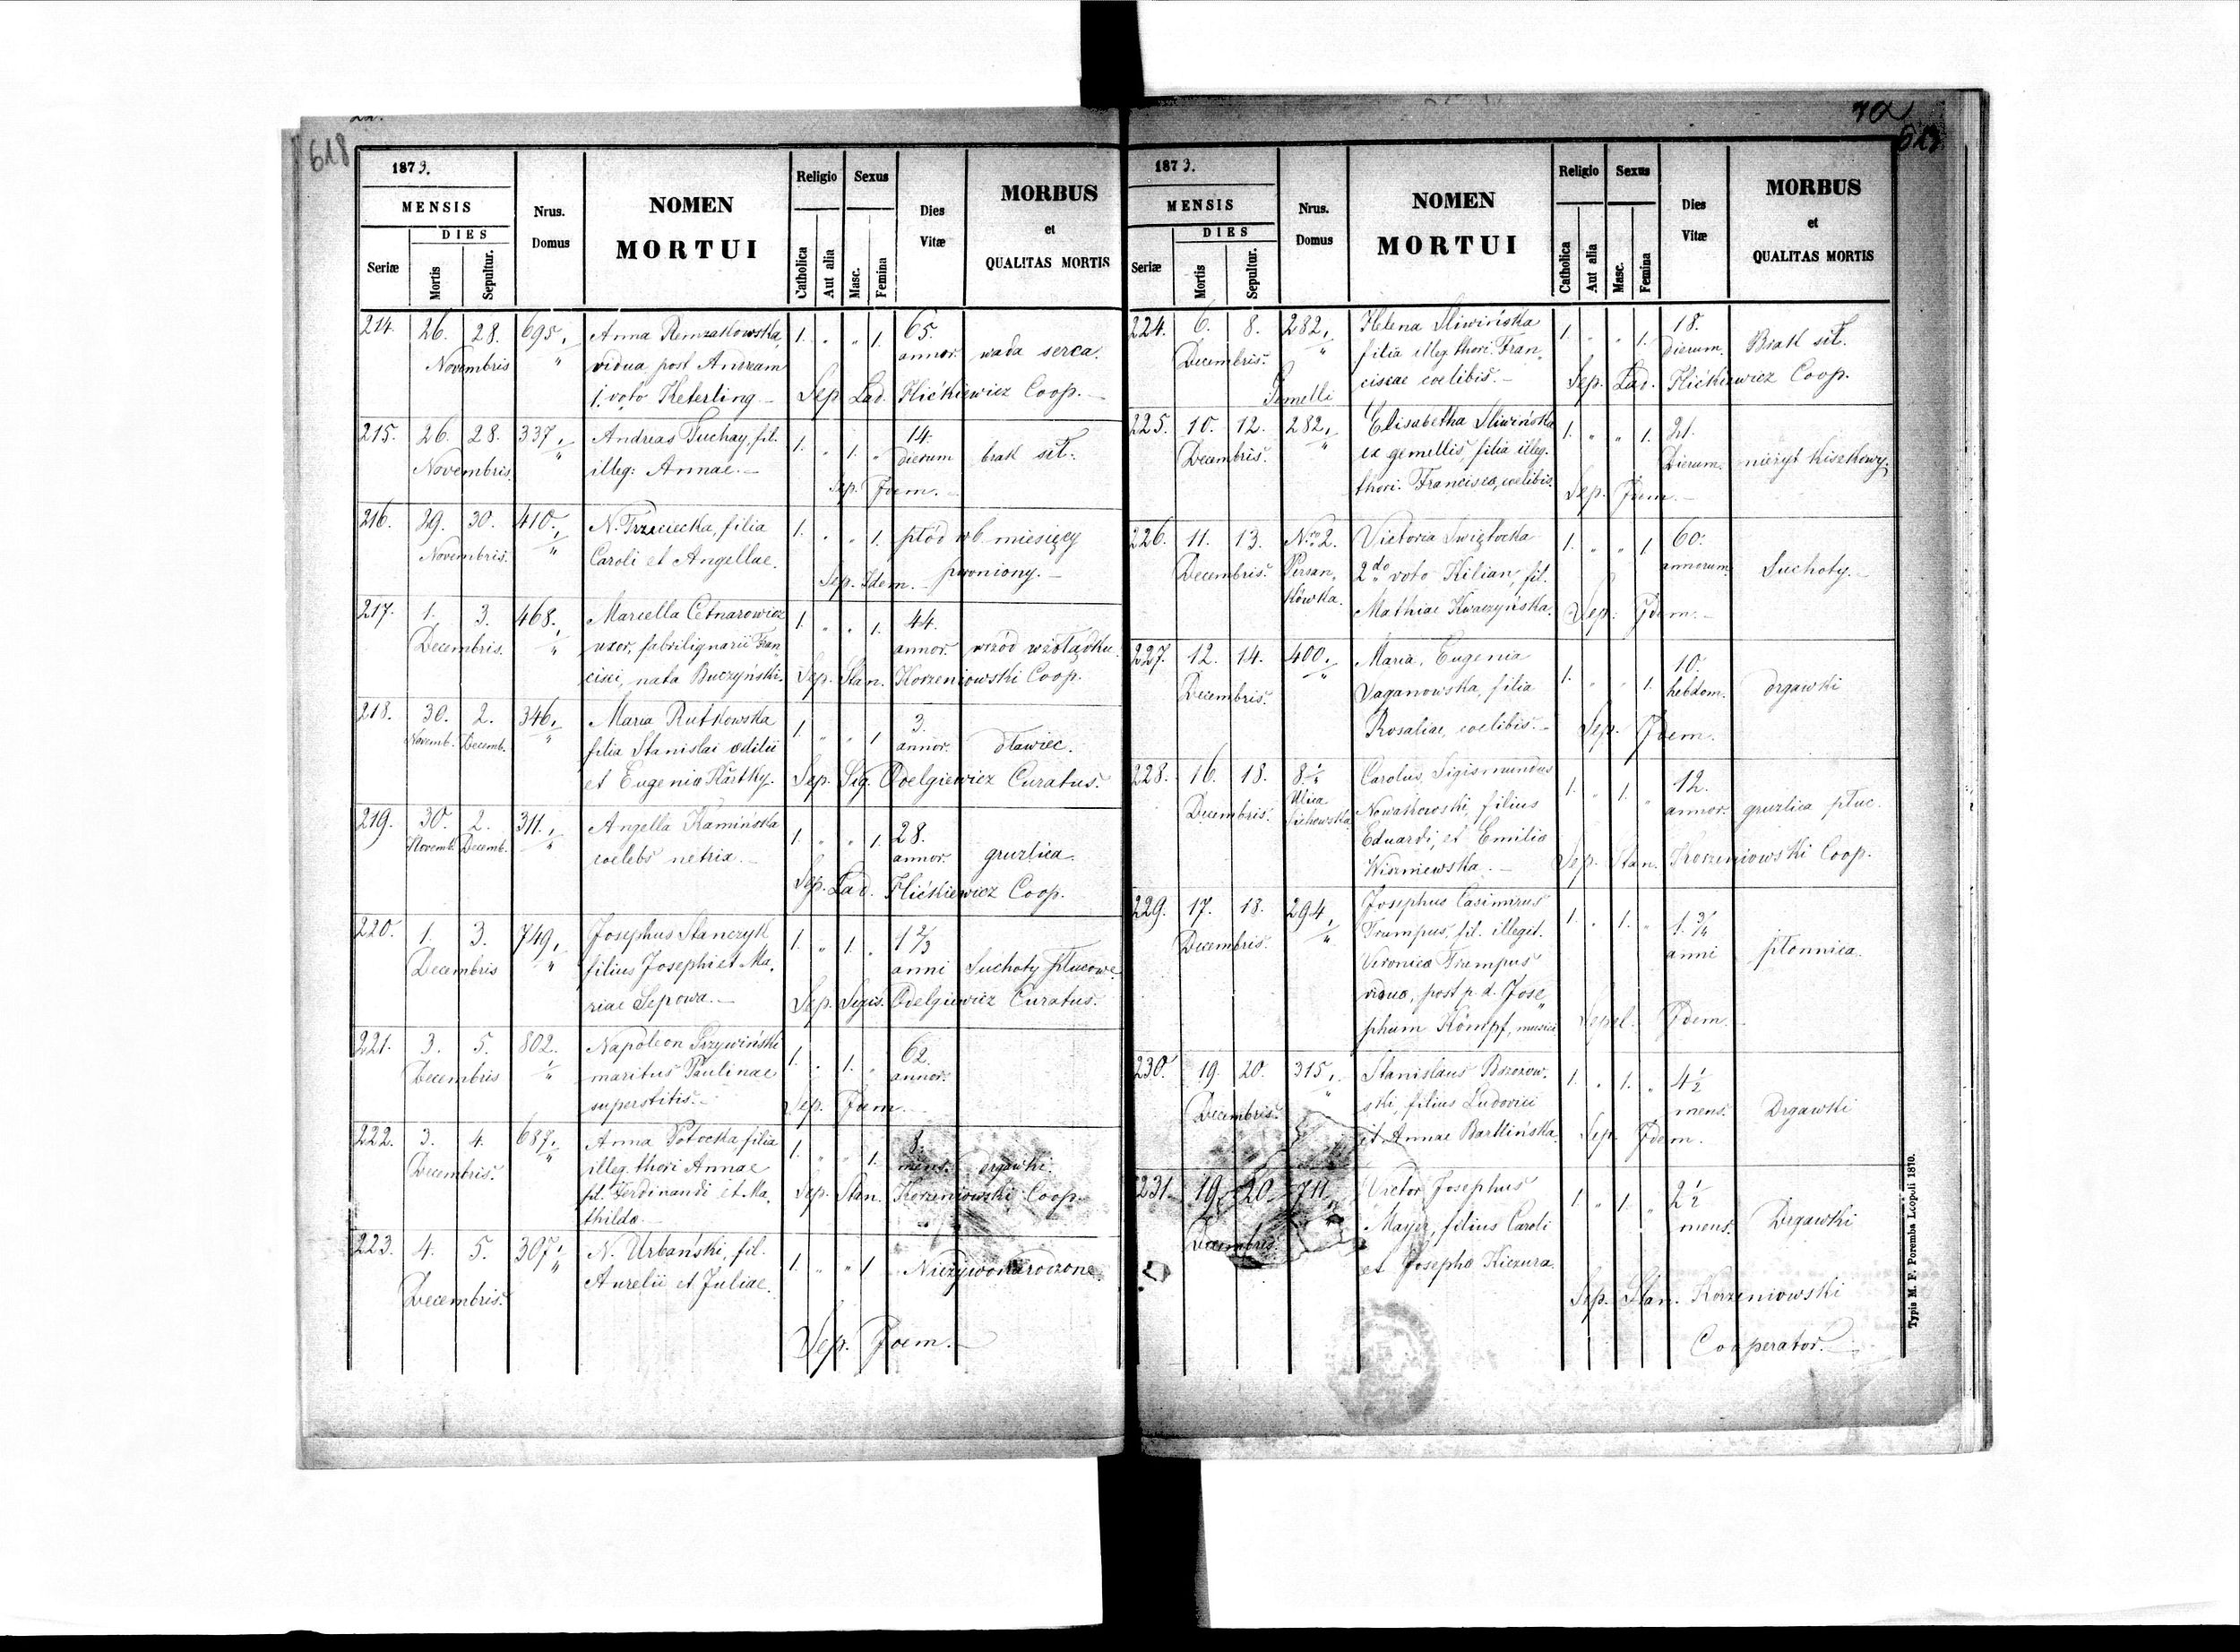 618
1873.
MENSIS
DIES
Seriæ
Mortis
Sepultur.
Nrus.
Domus
NOMEN
MORTUI
Religio
Catholica
Aut alia
Sexus
Masc.
Femina
Dies
Vitæ
MORBUS
et
QUALITAS MORTIS
214. 26. 28. 695. Anna Remzakowska, 1. " " 1. 65.
Novembris " vidua post Andream annor. wada serca.
1. voto Keterling.— Sep. Lad. Flićkiewicz Coop.—
215. 26. 28. 337. Andreas Suchay, fil. 1. " 1. " 14.
Novembris. " illeg: Annae.— dierum brak sił.
Sep. Idem.—
216. 29. 30. 410. N. Trzeciecka, filia 1. " " 1. płód w 6 miesięcy
Novembris. Caroli et Angellae. Sep. Idem. poroniony.—
217. 1. 3. 468. Marcella Cetnarowicz 1. " " 1. 44.
Decembris. uxor, fabrilignarii Fran annor. wrzód w żołądku.
cisci, nata Buczyński. Sep. Stan. Korzeniowski Coop.
218. 30. 2. 346. Maria Rutkowska 1. " " 1 3.
Novemb. Decemb. filia Stanislai aedilii annor. dławiec.
et Eugenia Sep. Sig. Odelgiewicz Curatus.
219. 30. 2. 311. Angella Kamińska 1. " " 1. 28.
Novemb. Decemb. coelebs netrix.— annor. gruzlica.
Sep. Lad. Flićkiewicz Coop.
220. 1. 3. 749. Josephus Stanczyk 1. " 1. " 1 2/3
Decembris filius Josephi et Ma, anni Suchoty płucowe
riae Sepowa.— Sep. Sigis. Odelgiewicz Curatus.
221. 3. 5. 802. Napoleon Grzywiński 1. " 1. " 62.
Decembris maritus Paulinae annor.
superstitis.— Sep. Idem.—
222. 3. 4. 687. Anna Potocka filia 1. " " 1. 8.
Decembris. illeg. thori Annae mens. drgawki.
fil. Ferdinandi et Ma, Sep. Stan. Korzeniowski Coop.
thilda.—
223. 4. 5. 307. N. Urbański, fil. 1. " " 1 Nieżywonarodzone.
Decembris. Aurelii et Juliae.
Sep. Idem.—
1873.
MENSIS
DIES
Seriæ
Mortis
Sepultur.
Nrus.
Domus
NOMEN
MORTUI
Religio
Catholica
Aut alia
Sexus
Masc.
Femina
Dies
Vitæ
MORBUS
et
QUALITAS MORTIS
224. 6. 8. 282. Helena Sliwińska 1. " " 1. 18.
Decembris. filia illeg. thori. Fran, dierum. Brak sił.
Gemelli ciscae coelibis.— Sep. Lad. Flićkiewicz Coop.
225. 10. 12. 282. Elisabetha Sliwińska 1. " " 1. 21.
Decembris. ex gemellis, filia illeg. Dierum. nieżyt kiszkowy.
thori. Francisca, coelibis. Sep. Idem.—
226. 11. 13. Nro 2. Victoria Swiętocka 1. " " 1 60.
Decembris. Persan, 2do voto Kilian, fil. annorum. Suchoty.—
kówka. Mathiae Kwaczyńska. Sep. Idem.—
227. 12. 14. 400. Maria, Eugenia 1. " " 1. 10.
Decembris. Saganowska, filia hebdom. drgawki
Rosaliae, coelibis.— Sep. Idem.
228. 16. 18. 8 1/4 Carolus, Sigismundus 1. " 1. " 12.
Decembris. Ulica Nowakowski, filius annor. gruzlica płuc.
Eduardi, et Emilia
Wiszniewska.— Sep. Stan. Korzeniowski Coop.
229. 17. 18. 294. Josephus Casimirus 1. " 1. " 1. 3/4
Decembris. Trampus, fil. illegit. anni płonnica.
Veronica Trampus
vidua, post p. d. Jose,
phum Kömpf, musici Sepel. Idem.
230. 19. 20. 315. Stanislaus Bszozow, 1. " 1. " 4 1/2
Decembris. ski, filius Ludovici mens. Drgawki
et Annae Barklińska. Sep. Idem.
231. 19. 20. 711. Victor Josephus 1. " 1. " 2 1/2
Decembris. Mayer, filius Caroli mens. Drgawki
et Josepha Kiczura.
Sep. Stan. Korzeniowski
Cooperator.
Typis M. F. Poremba Leopoli 1870.